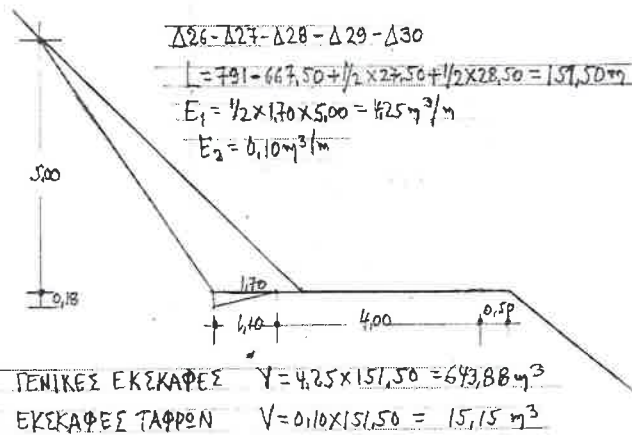 Δ26-Δ27-Δ28-Δ29-Δ30
L=791-667,50+1/2×27,50+1/2×28,50=151,50m
E₁=1/2×1,70×5,00=4,25m³/m
E₂=0,10m³/m
5,00
0,18
1,70
1,10
4,00
0,50
ΓΕΝΙΚΕΣ ΕΚΣΚΑΦΕΣ V=4,25×151,50=643,88m³
ΕΚΣΚΑΦΕΣ ΤΑΦΡΩΝ V=0,10×151,50= 15,15 m³